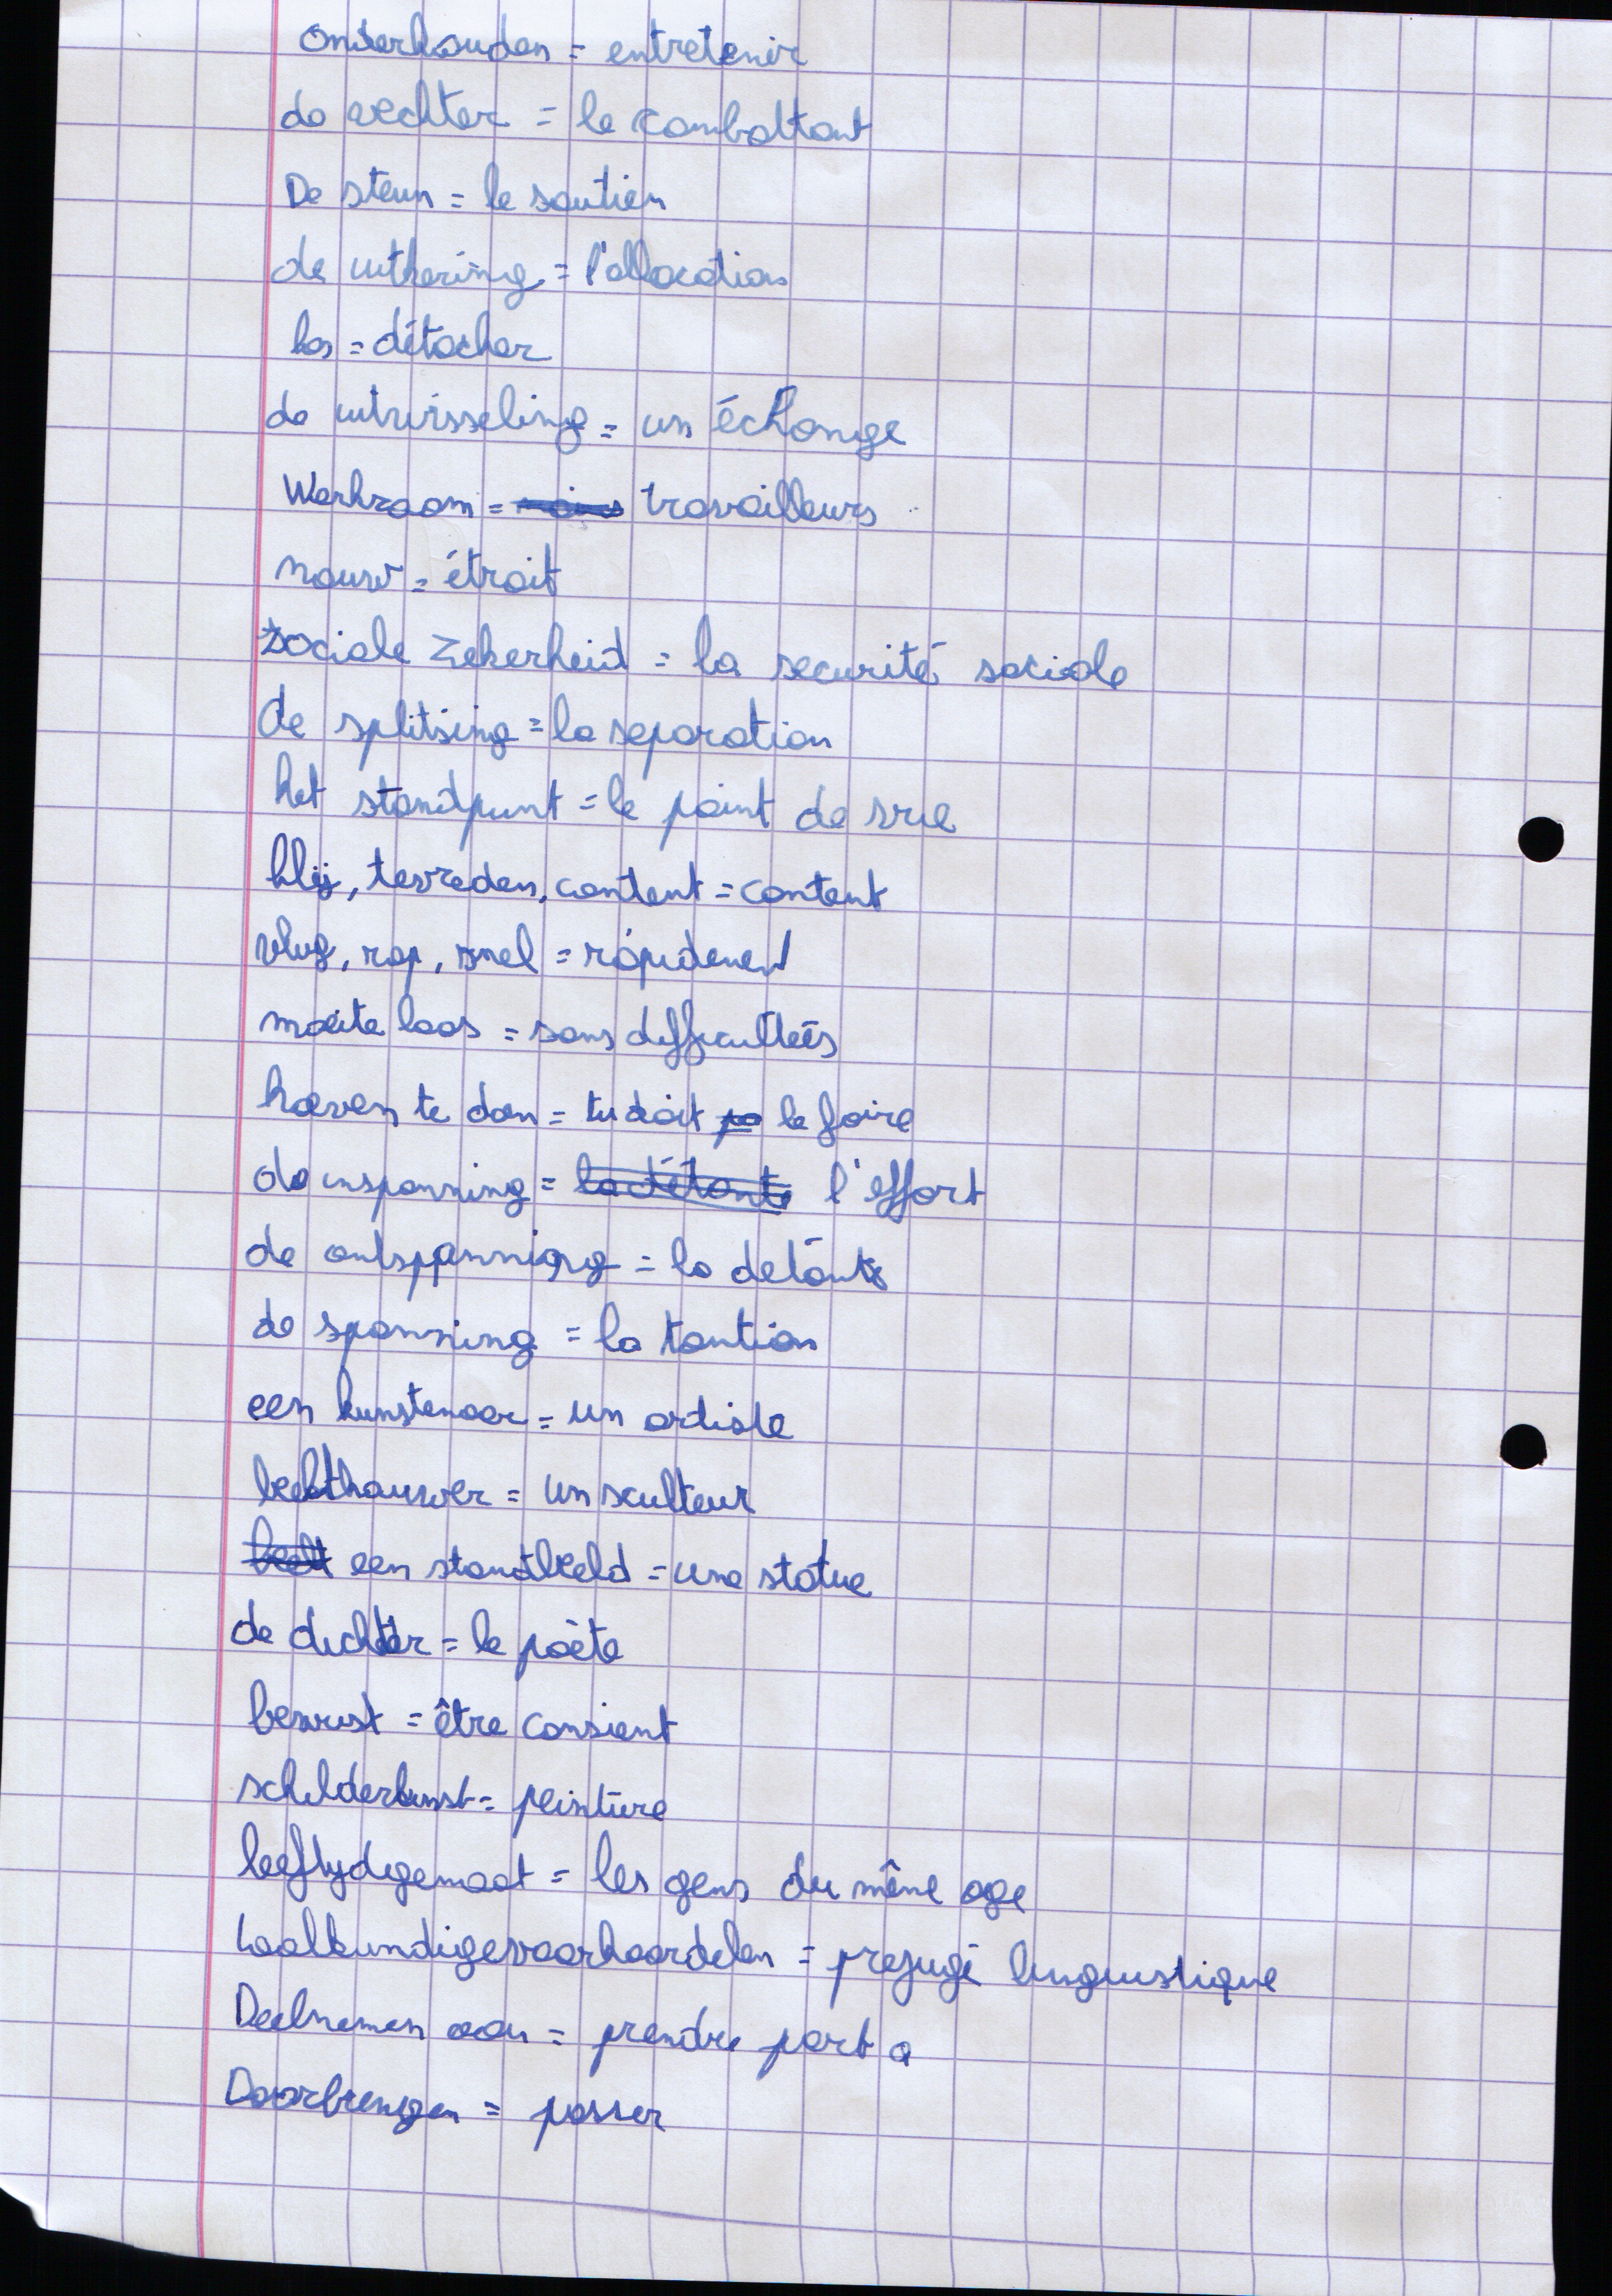 Onderhouden = entretenir
de vechter = le combattant
De steun = le soutien
de uitkering = l'allocation
los = détacher
de uitwisseling = un échange
Werkzaam = travailleurs
nauw = étroit
sociale zekerheid = la securité sociale
de splitsing = la separation
het standpunt = le point de vue
blij, tevreden, content = content
vlug, rap, snel = rapidement
moeite loos = sans difficultées
hoeven te doen = tu doit le faire
de inspanning = l'effort
de ontspanning = la detante
de spanning = la tention
een kunstenaar = un artiste
beeldhouwer = un sculteur
een standbeeld = une statue
de dichter = le poète
bewust = être consient
schilderkunst = peinture
leeftydgemaat = les gens du même age
taalkundigevooroordelen = prejugé linguistique
Deelnemen aan = prendre part a
Doorbrengen = passer